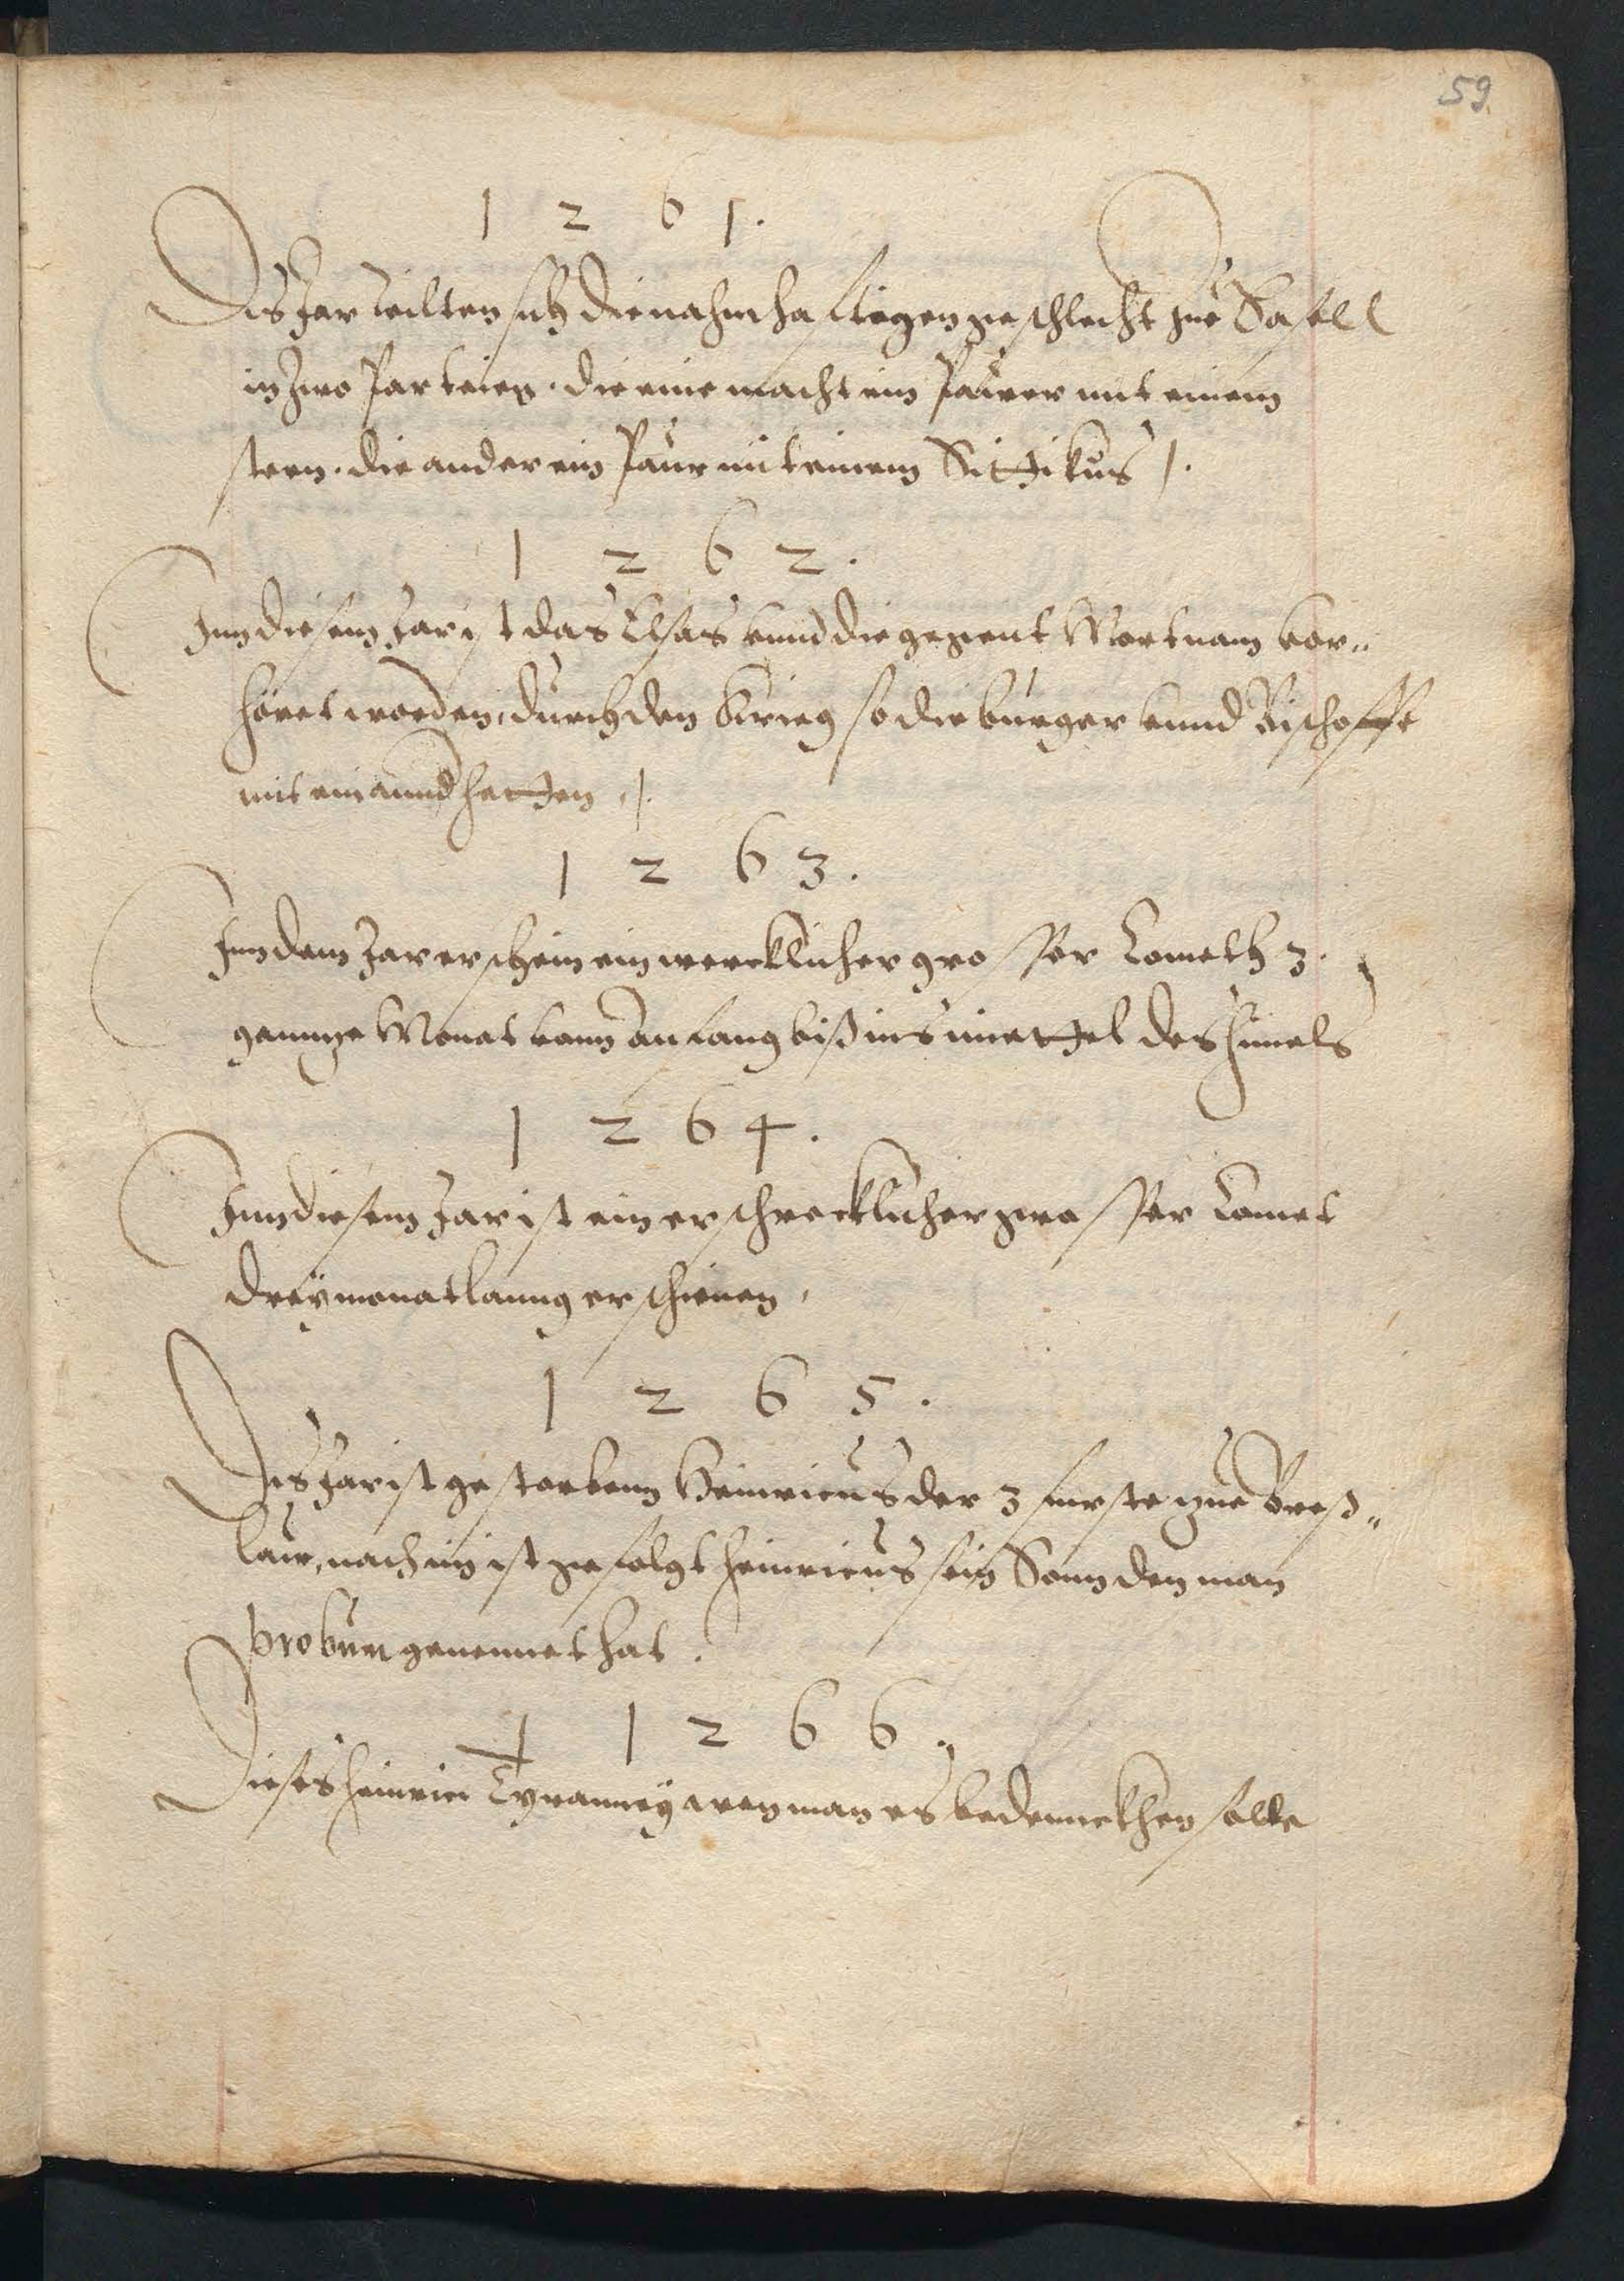 59.
1 2 6 1.
Das Jar teilten sich die nahmhafftigen geschlecht zue Basell
in zwo Parteien. die eine macht ein Paner mit einem
stern. die ander ein Paner mit einem Sittikus /.
1 2 6 2.
Inn diesem Jar ist das Elsas vnnd die gegent Mortnaw vor„
höret worden, durch den Krieg so die burger vnnd Bischoffe
mit einannd hetten ./.
1 2 6 3.
Inn dem Jar erschein ein mercklicher grosser Cometh 3.
gannze Monat vom anfang biß ins mittel des himels
1 2 6 4.
Inn diesem Jar ist ein erschrecklicher grosser Comet
dreÿ monat lanng erschienen.
1 2 6 5.
Das Jar ist gestorbenn Heinricus der 3 furste zue Breß„
law, nach im ist gefolgt Heinricus sein Sonn den man
probum genennet hat.
1 2 6 6.
Dieses Heinrici Tyranneÿ wen man es bedennckhen solle